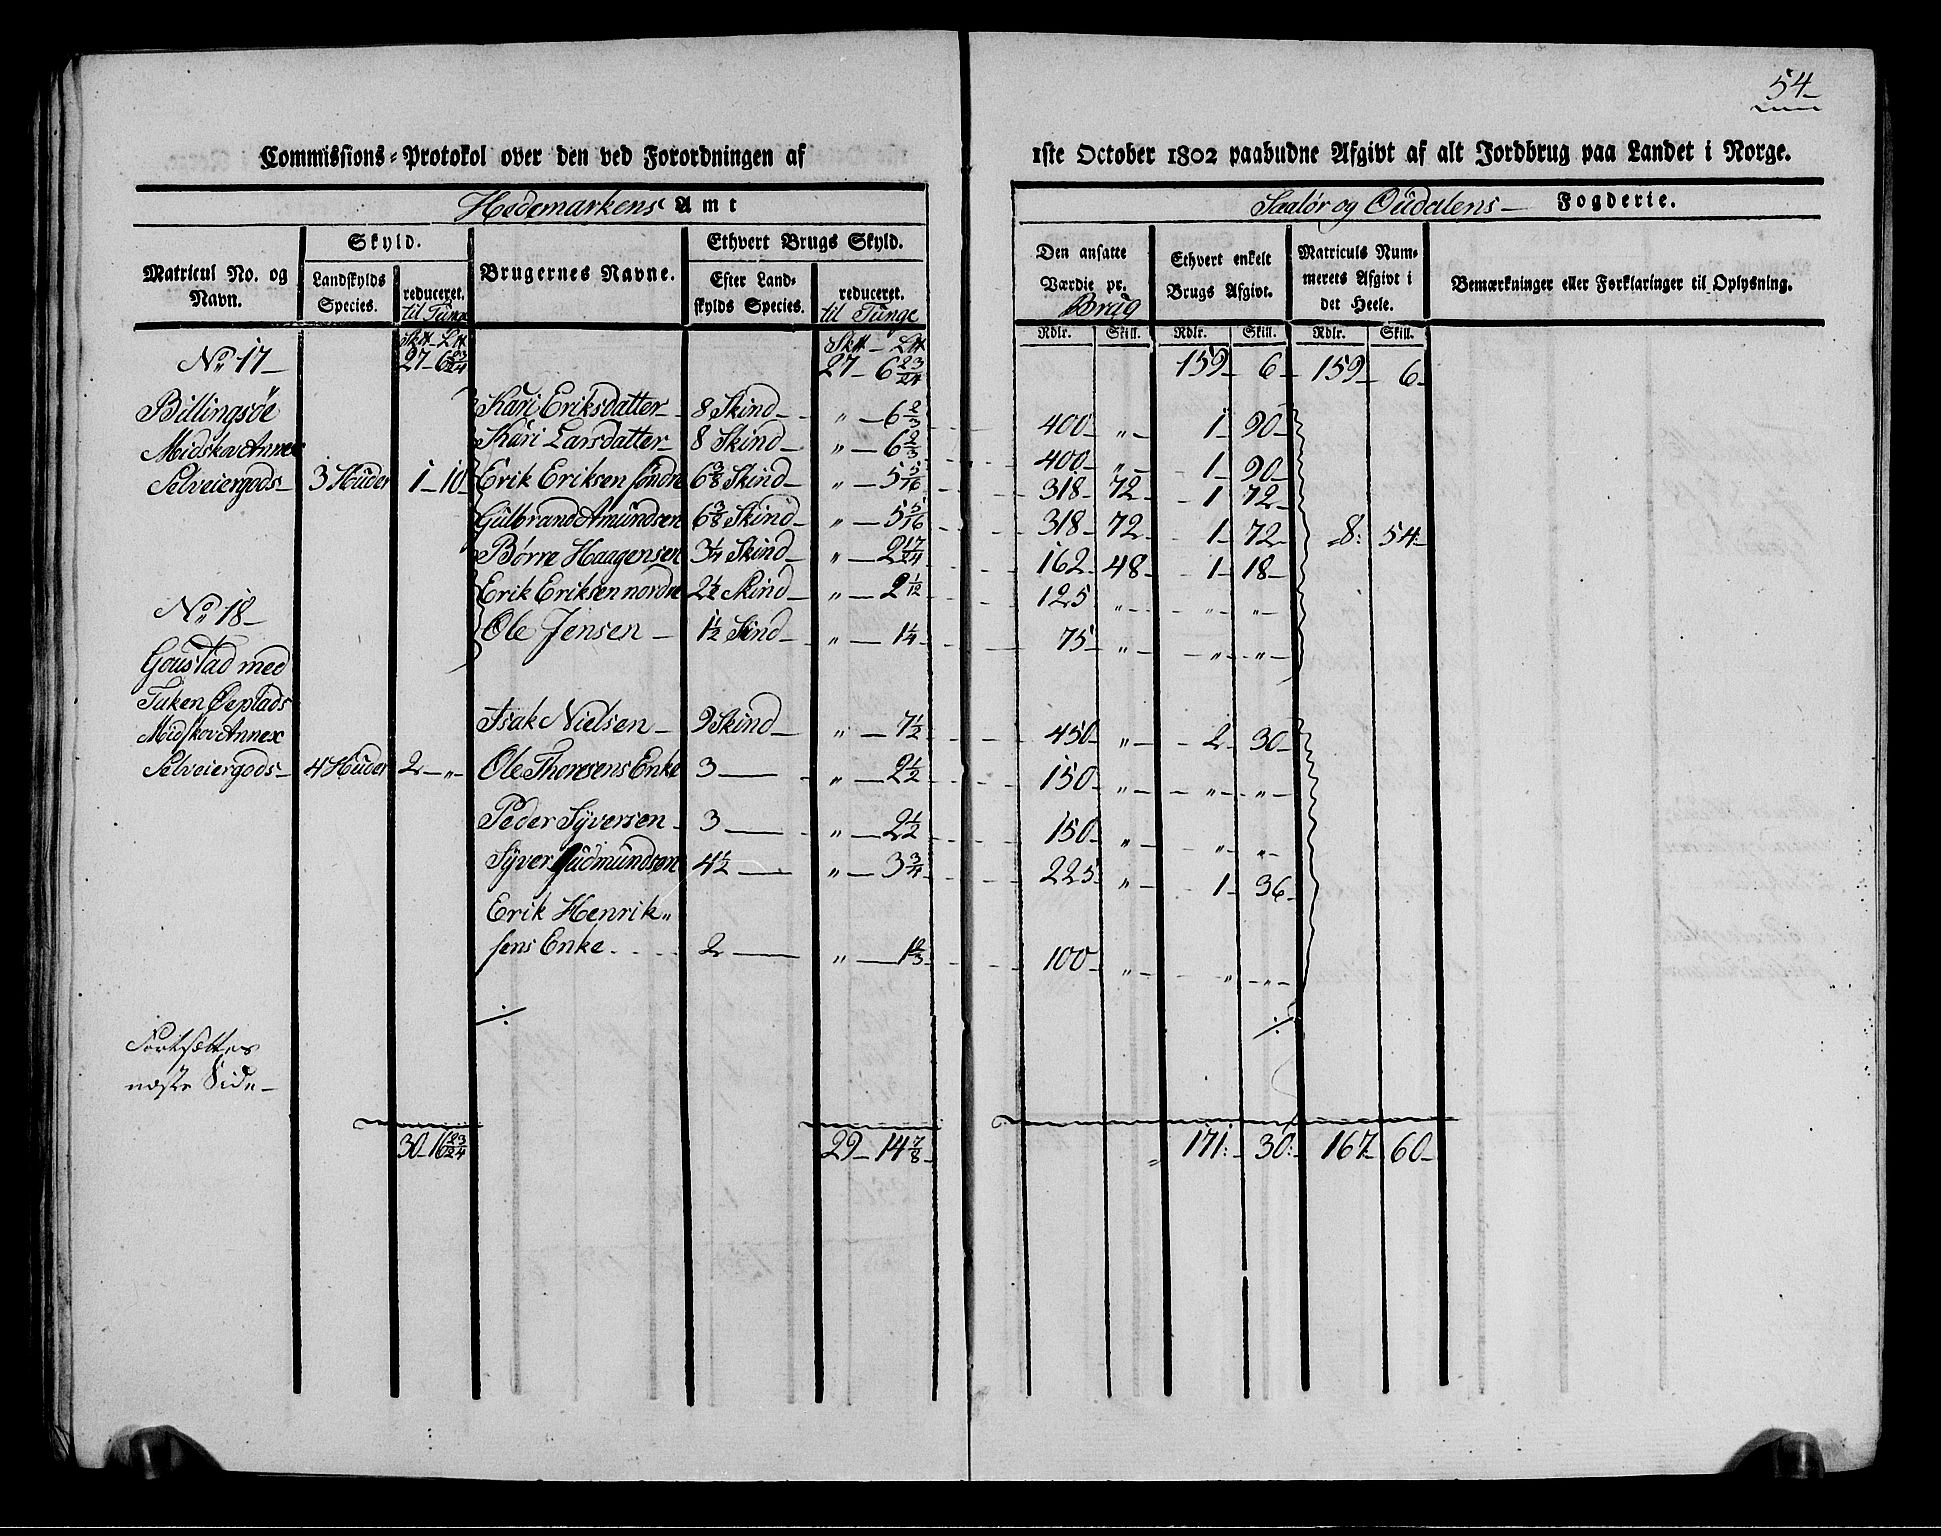 54
Commissions-Protokol over den ved Forordningen af 1ste October 1802 paabudne Afgivt af alt Jordbrug paa Landet i Norge.
Hedemarkens Amt
Saalør og Oudalens Fogderie.
Matricul No. og Navn.
Skyld.
Landskylds Species.
reduceret. til Tunge
Brugernes Navne.
Ethvert Brugs Skyld.
Efter Landskylds Species.
reduceret. til Tunge
Den ansatte Værdie pr. Brug
Ethvert enkelt Brugs Afgivt.
Matriculs Nummerets Afgivt i det Heele.
Bemærkninger eller Forklaringer til Oplysning.
Rdlr. Skill. Rdlr. Skill. Rdlr. Skill.
No. 17 27 - 6 23/24 27 - 6 23/24 159 6 159 6
Billingsöe Kari Eriksdatter 8 Skind " 6 2/3 400 " 1 90
Midskov Annex Kari Larsdatter 8 Skind " 6 2/3 400 " 1 90
Selveiergods 3 Huder 1 - 10 Erik Eriksen söndre 6 3/8 Skind " 5 5/16 318 72 1 72
Gulbrand Amundsen 6 3/8 Skind " 5 5/16 318 72 1 72 8: 54
Børre Haagensen 3 1/4 Skind " 2 17/24 162 48 1 18
Erik Eriksen nordre 2 1/2 Skind " 2 1/12 125 " " "
No. 18
Ole Jensen 1 1/2 Skind " 1 1/4 75 " " "
Goustad med
Tuken Øeplads
Midskov Annex Isak Nielsen 9 Skind " 7 1/2 450 " 2 30
Selveiergods 4 Huder 2 - " Ole Thoresens Enke 3 " 2 1/2 150 " " "
Peder Syversen 3 " 2 1/2 150 " " "
Syver Gudmundsen 4 1/2 " 3 3/4 225 " 1 36
Erik Henrik"
sens Enke 2 " 1 2/3 100 " " "
Fortsættes
næste Side
30 - 16 23/24 29 - 14 7/8 171: 30: 167 60